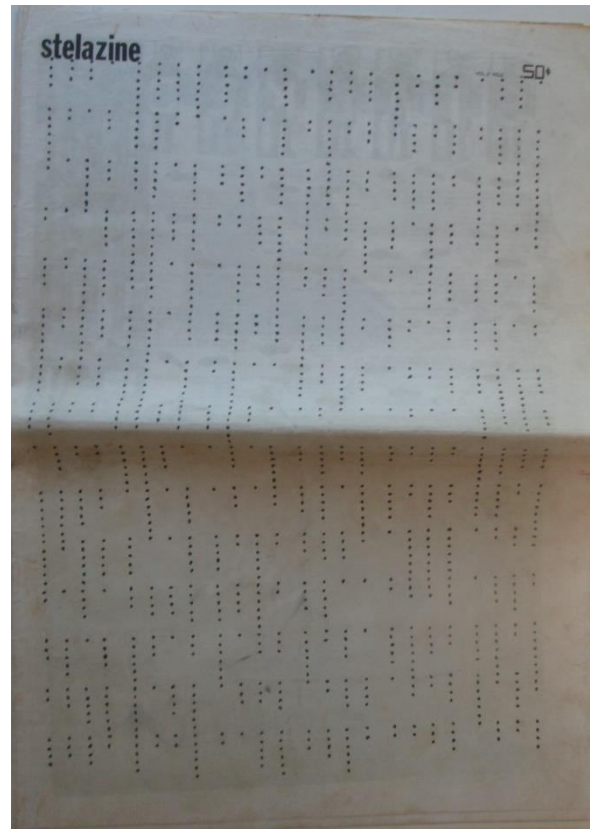 stelazine
50¢